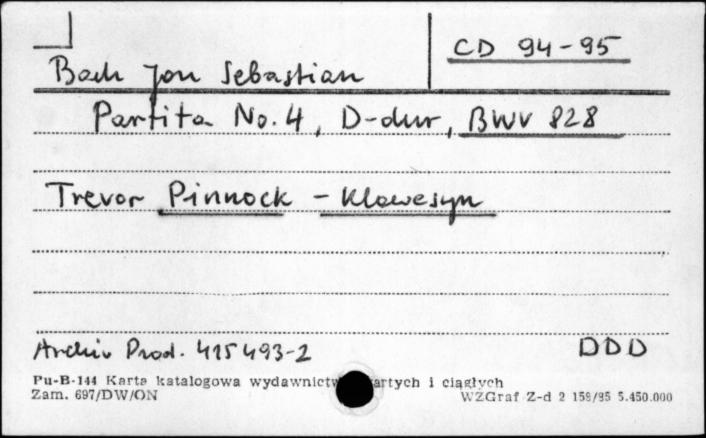 CD 94-95
Bach Jan Sebastian
Partita No. 4, D-dur, BWV 828
Trevor Pinnock - Klawesyn
Archiv Prod. 415 493-2 DDD
Pu-B-144 Karta katalogowa wydawnictw zwartych i ciągłych
Zam. 697/DW/ON WZGraf Z-d 2 158/85 5.450.000